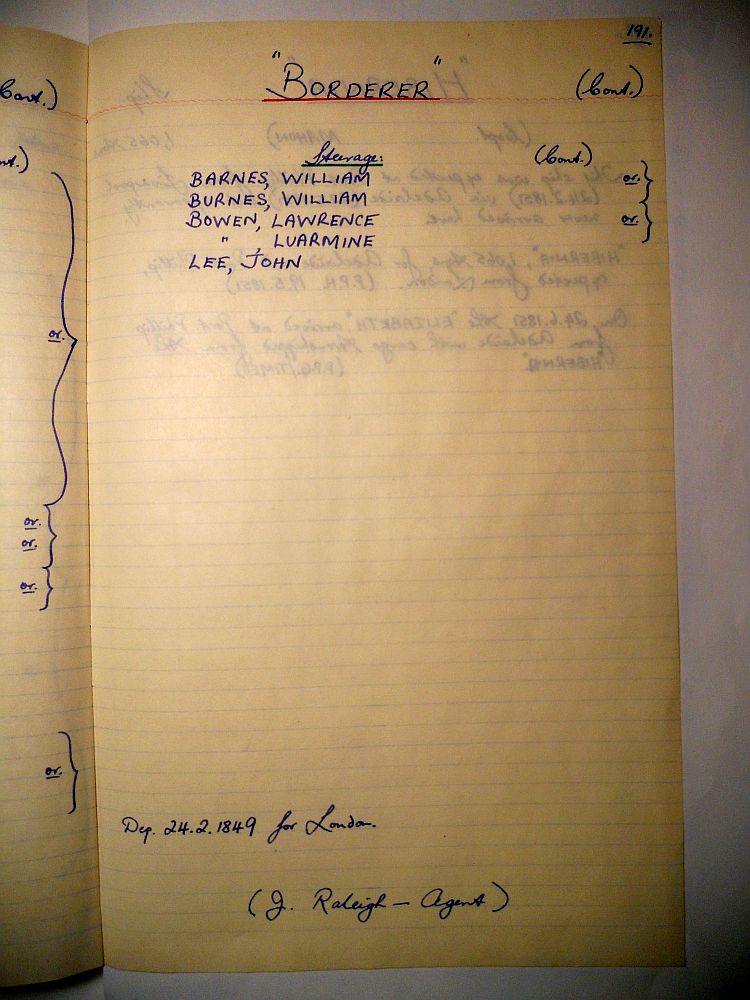 191.
"BORDERER" (Cont.)
Steerage: (Cont.)
BARNES, WILLIAM or.
BURNES, WILLIAM
BOWEN, LAWRENCE or.
" , LUARMINE
LEE, JOHN
Dep. 24.2.1849 for London.
(J. Raleigh — Agent)
Cont.)
nt.)
or.
or.
or.
or.
or.